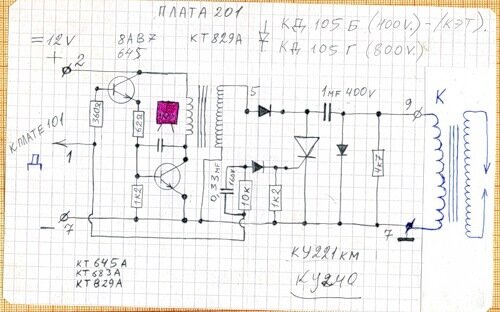 ПЛАТА 201
КД 105 Б (400V.) - /КЭТ).
КД 105 Г (800V.)
= 12V
8АВ7
645
КТ 829А
+
2
5
1 MF 400V
9
К
360Ω
62Ω
К ПЛАТЕ 101
Д
1
1К2
0,33 MF
160V
10К
1К2
4К7
7
7
КУ221КМ
КУ240
КТ 645А
КТ 683А
КТ 829А